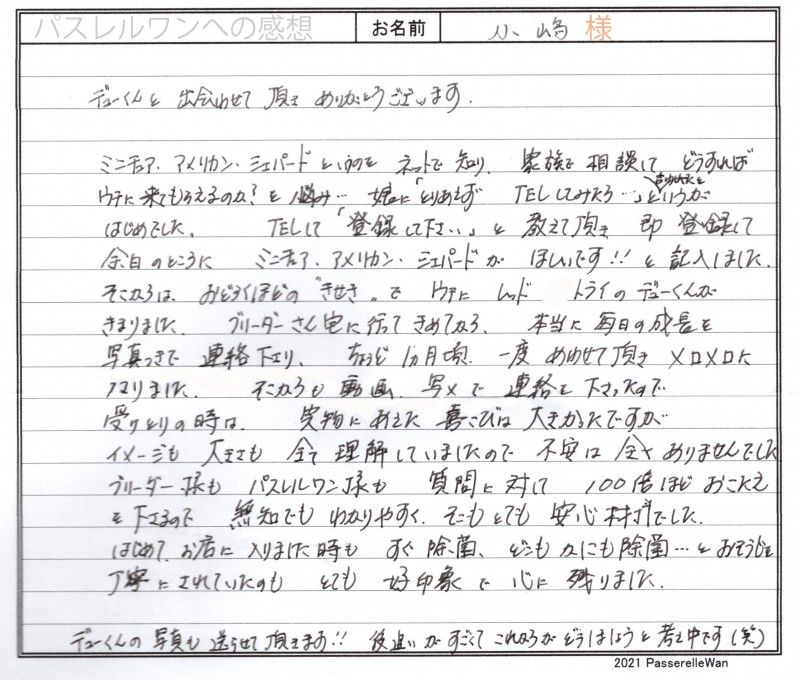 パスレルワンへの感想 お名前 小嶋 様
デューくんと 出会わせて 頂き ありがとうございます.
ミニチュア、アメリカン・シェパードというのを ネットで 知り、 家族で 相談して どうすれば
ウチに来てもらえるのか?を 悩み… 娘に「とりあえず TELしてみたら…」と言われたというのが
はじめでした。 TELして「登録して下さい」と 教えて頂き 即 登録して
余白のところに ミニチュア、アメリカン・シェパードが ほしいです!! と記入しました.
そこからは、おどろくほどの "きせき" で ウチに レッド トライのデューくんが
きまりました. ブリーダーさん宅に行って きめてから、 本当に 毎日の成長を
写真つきで 連絡下さり、 ちょうど 1ヵ月頃、 一度 あわせて頂き メロメロに
なりました. そこからも 動画、写メで 連絡を 下さったので
受けとりの時は、 実物にあえた 喜こびは 大きかったですが
イメージも 大きさも 全て理解していましたので 不安は 全くありませんでした
ブリーダー様も パスレルワン様も 質問に対して 100倍ほど おこたえ
を下さるので 無知でも わかりやすく、そこも とても 安心材料でした.
はじめて、お店に 入りました時も すぐ 除菌、 どこもかにも除菌…と おそうじを
丁寧にされていたのも とても 好印象で 心に 残りました.
デューくんの 写真も 送らせて頂きます!! 後追いがすごくて これからがどうしようと 考え中です(笑)
2021 PasserelleWan